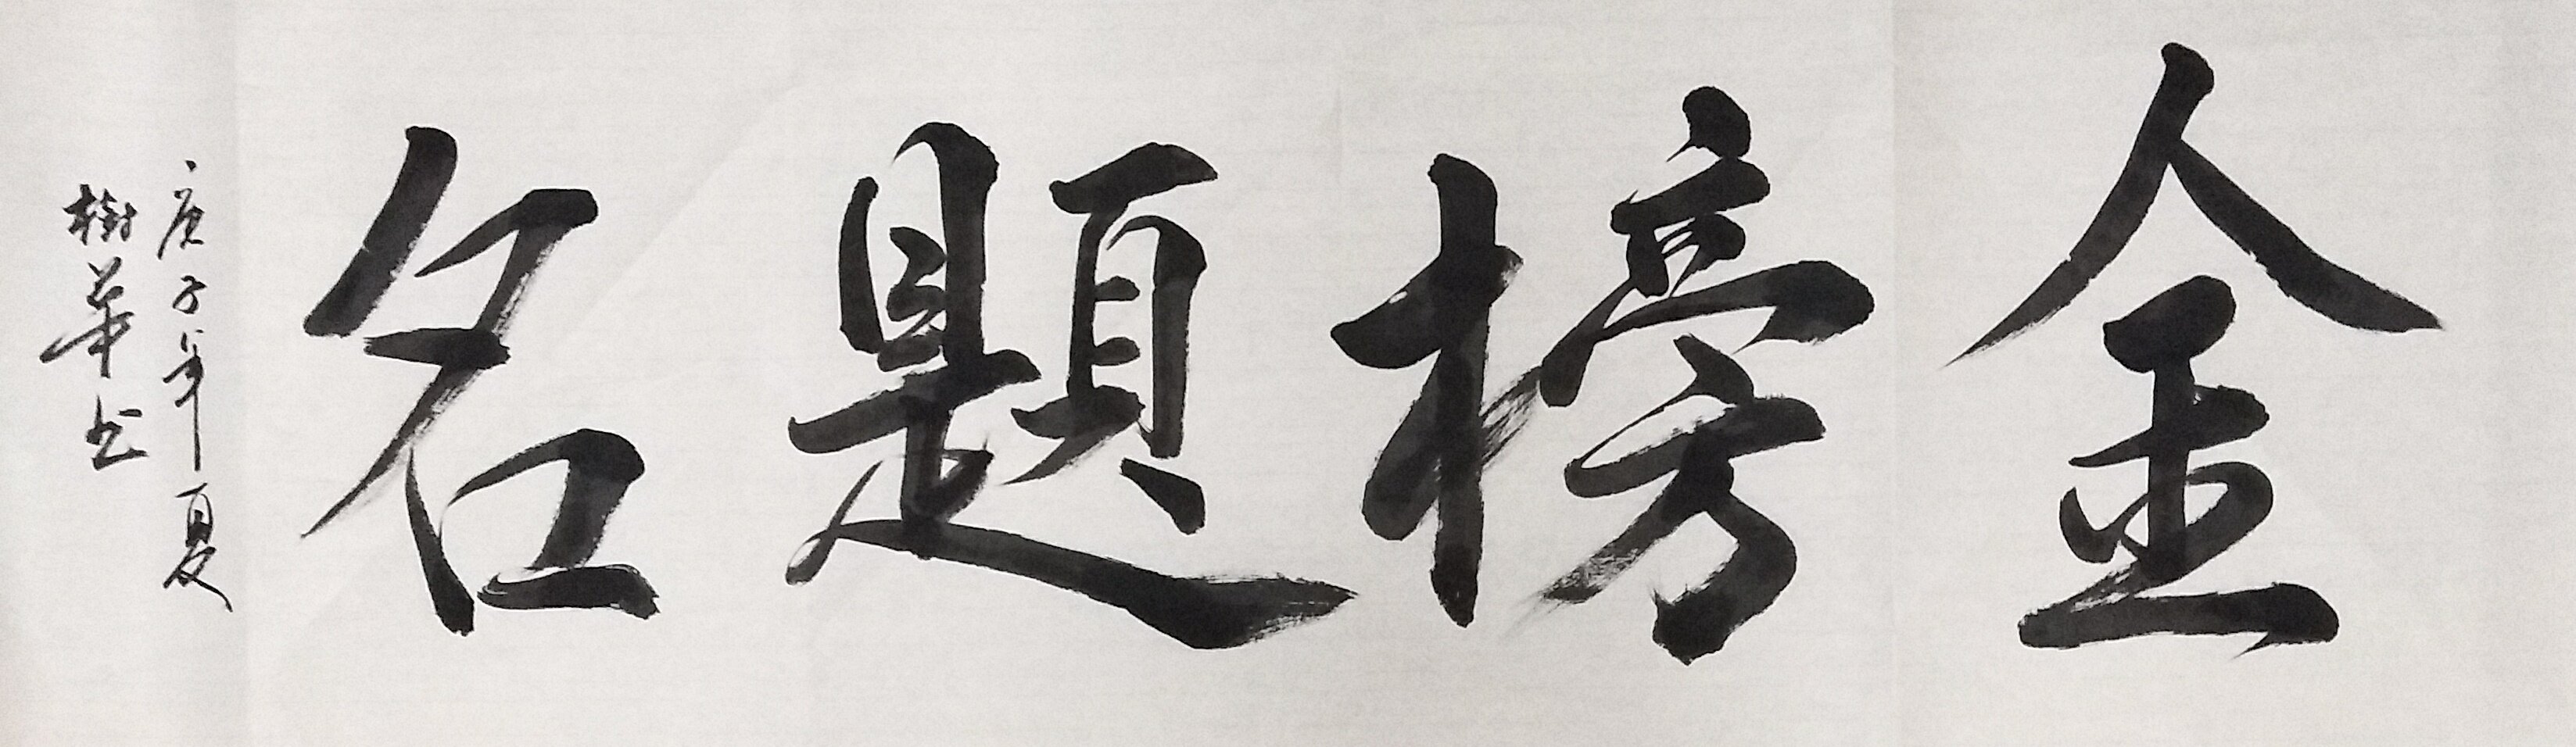 金榜題名
庚子年夏
樹華书